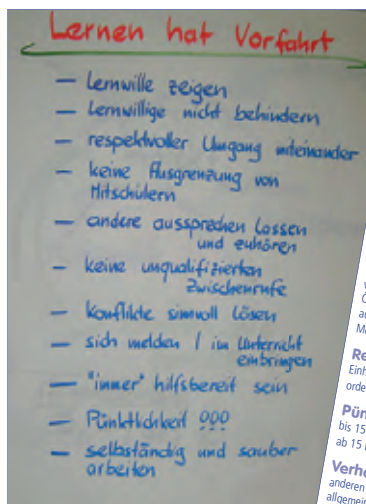 Lernen hat Vorfahrt
— Lernwille zeigen
— Lernwillige nicht behindern
— respektvoller Umgang miteinander
— keine Ausgrenzung von
Mitschülern
— andere aussprechen lassen
und zuhören
— keine unqualifizierten
Zwischenrufe
— Konflikte sinnvoll lösen
— sich melden / im Unterricht
einbringen
— "immer" hilfsbereit sein
— Pünktlichkeit !!!
— selbständig und sauber
arbeiten
Einh
orde
Pün
bis 15
ab 15
Verha
anderen
allgemein